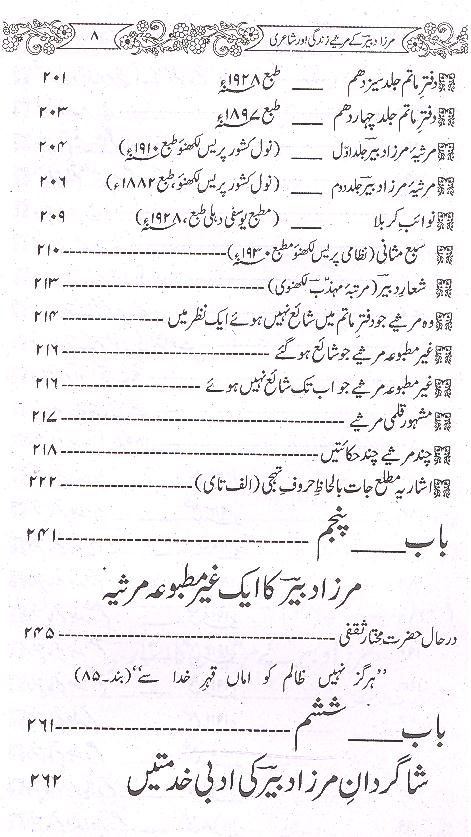 مرزا دبیرؔ کے مرثیے زندگی اور شاعری ۸
دفترِ ماتم جلد سیزدھم ___ طبع ۱۹۲۸ء ۲۰۱
دفترِ ماتم جلد چہاردھم ___ طبع ۱۸۹۷ء ۲۰۳
مرثیۂ مرزا دبیرؔ جلد اوّل ___ (نول کشور پریس لکھنؤ طبع ۱۹۱۰ء) ۲۰۴
مرثیۂ مرزا دبیرؔ جلد دوم ___ (نول کشور پریس لکھنؤ، طبع ۱۸۸۲ء) ۲۰۶
نوائب کربلا ___ (مطبع یوسفی دہلی طبع، ۱۹۲۸ء) ۲۰۹
سبع مثانی (نظامی پریس لکھنؤ مطبع ۱۹۳۰ء) ۲۱۰
شعارِ دبیرؔ (مرتبۂ مہذّبؔ لکھنوی) ۲۱۳
وہ مرثیے جو دفترِ ماتم میں شائع نہیں ہوئے ایک نظر میں ۲۱۴
غیر مطبوعہ مرثیے جو شائع ہو گئے ۲۱۶
غیر مطبوعہ مرثیے جو اب تک شائع نہیں ہوئے ۲۱۶
مشہور قلمی مرثیے ۲۱۷
چند مرثیے چند حکائتیں ۲۱۸
اشاریہ مطلع جات بالحاظِ حروفِ تہجّی (الف تا ی) ۲۲۲
باب ___ پنجم ۲۴۱
مرزا دبیرؔ کا ایک غیر مطبوعہ مرثیہ
در حال حضرت مختار ثقفی ۲۴۵
”ہرگز نہیں ظالم کو اماں قہرِ خدا سے“ (بند۔۸۵)
باب ___ ششم ۲۶۱
شاگردانِ مرزا دبیرؔ کی ادبی خدمتیں ۲۶۲